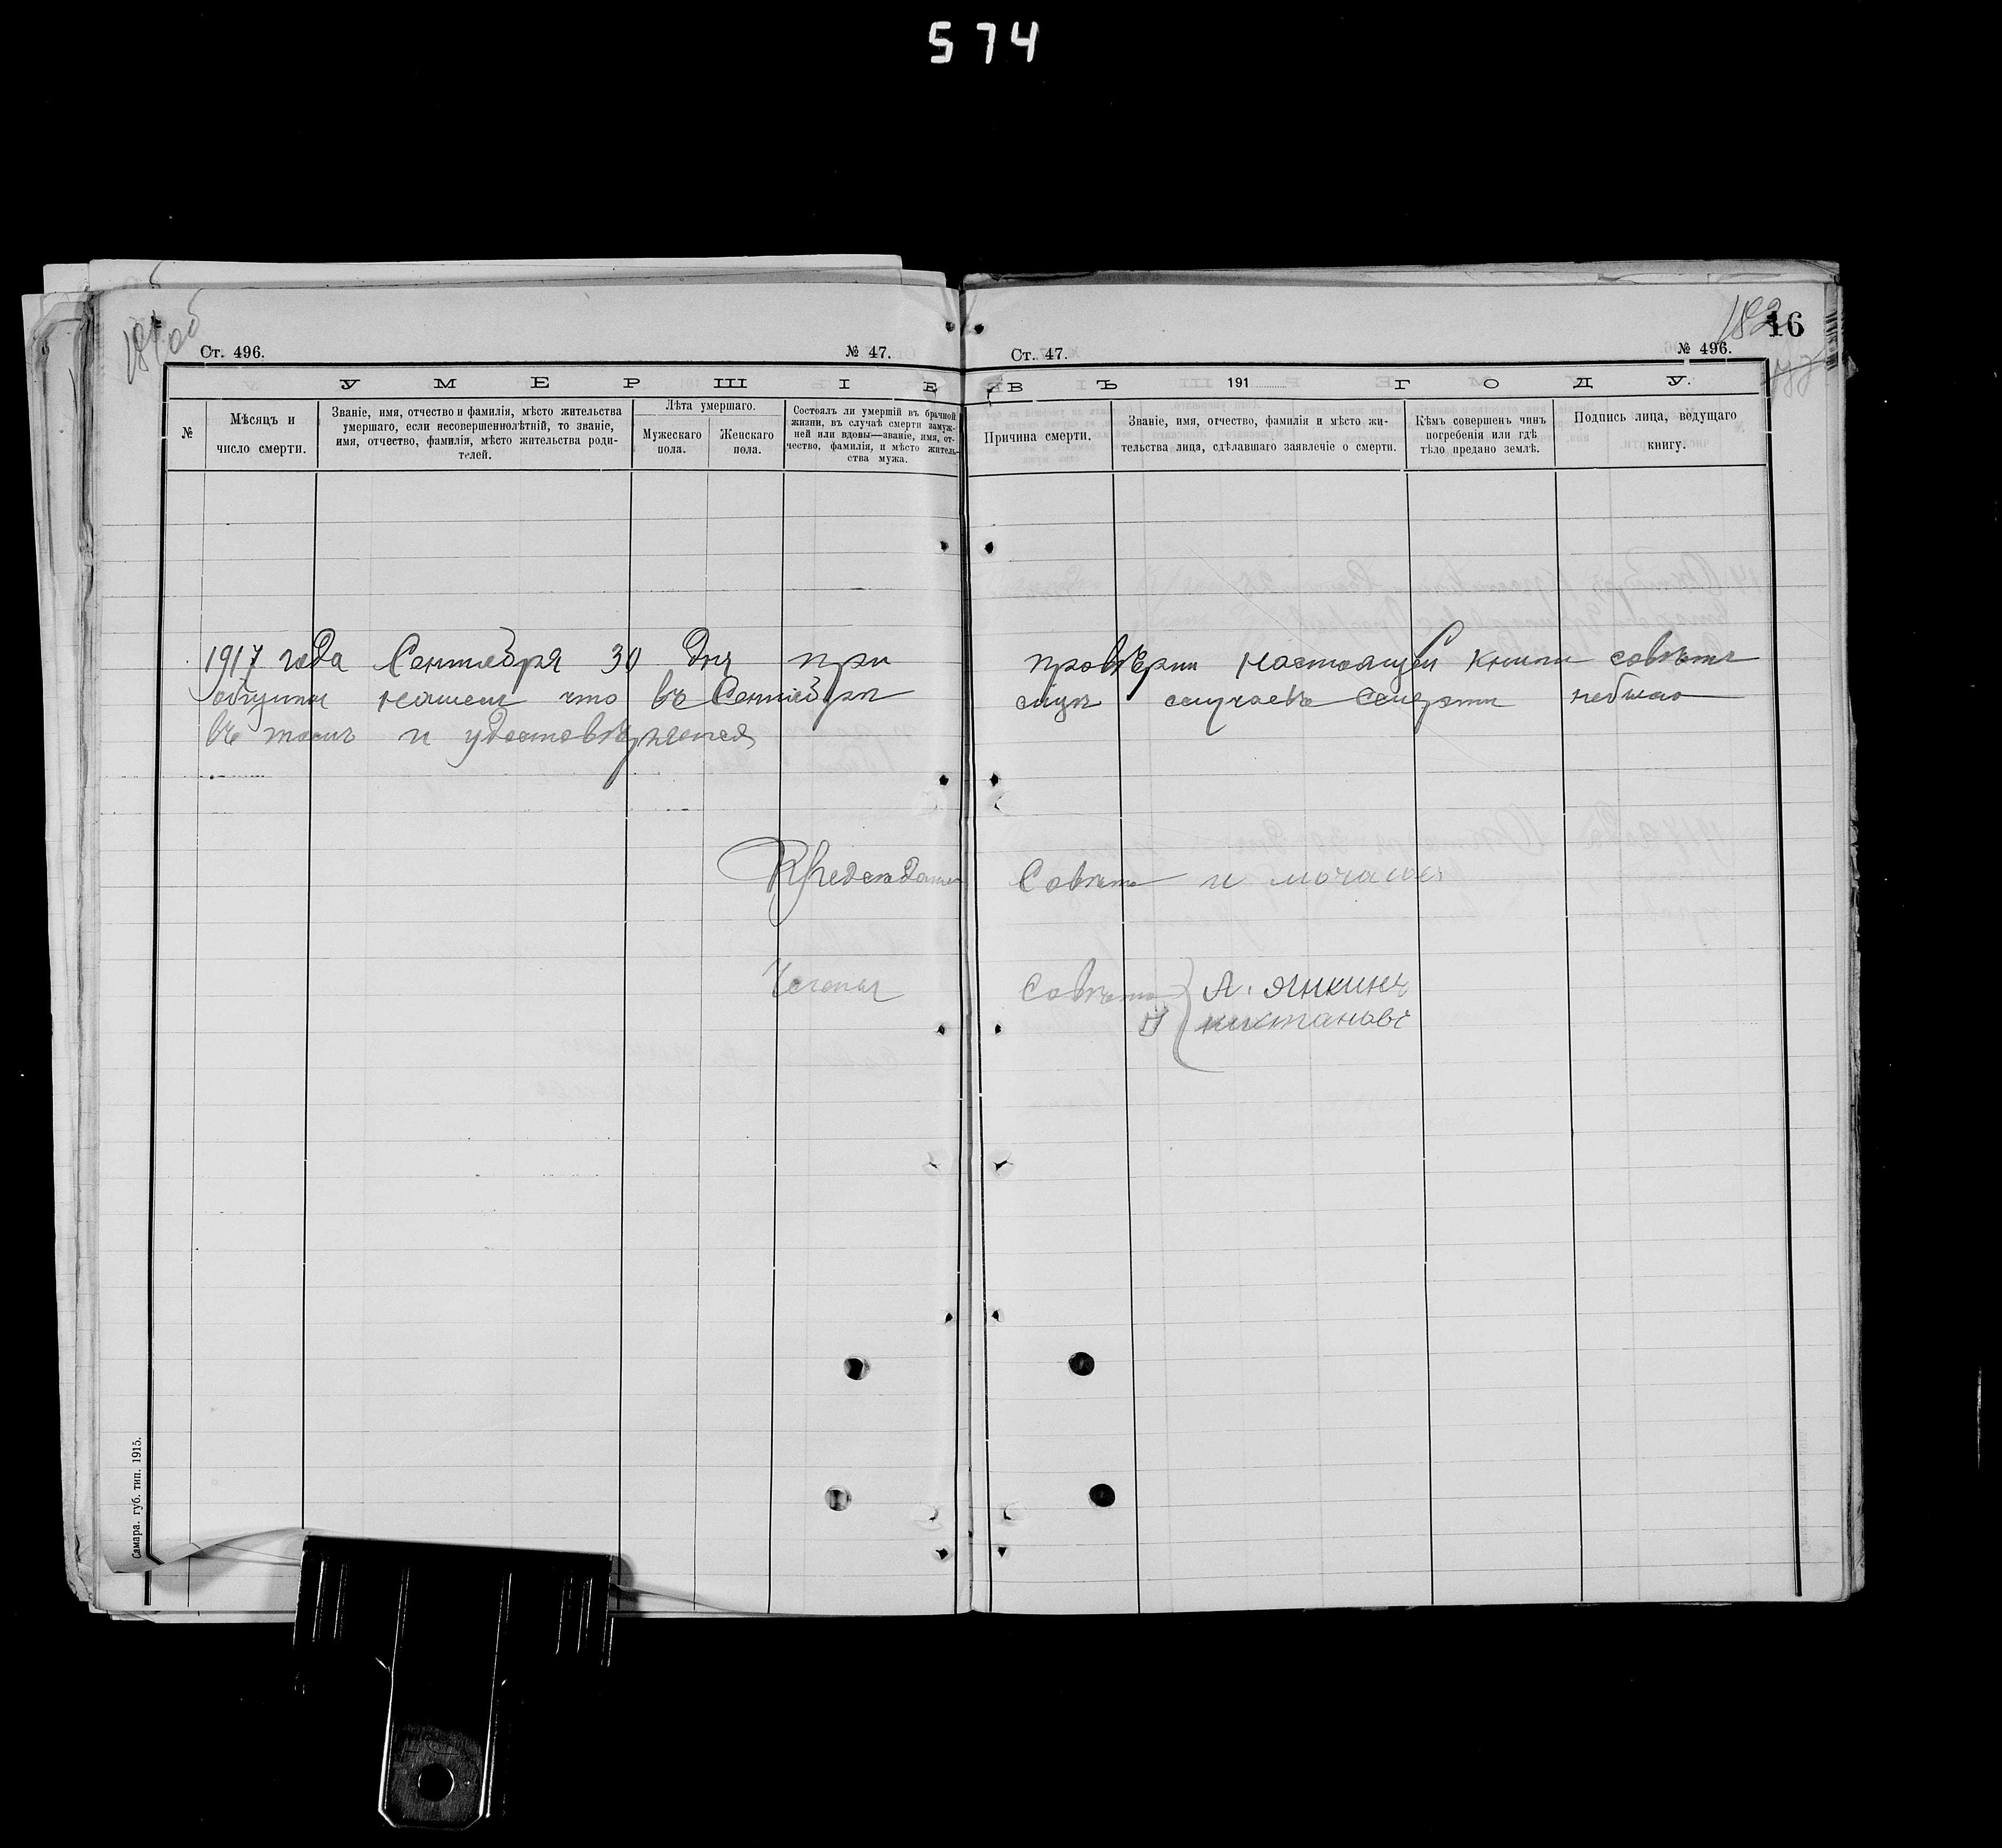 574
181 об
182
16
Ст. 496. № 47.
Ст. 47. № 496.
УМЕРШІЕ ВЪ 191 ГОДУ.
№
Мѣсяцъ и
число смерти.
Званіе, имя, отчество и фамилія, мѣсто жительства
умершаго, если несовершеннолѣтній, то званіе,
имя, отчество, фамилія, мѣсто жительства роди-
телей.
Лѣта умершаго.
Мужескаго
пола.
Женскаго
пола.
Состоялъ ли умершій въ брачной
жизни, въ случаѣ смерти замуж-
ней или вдовы—званіе, имя, от-
чество, фамилія, и мѣсто житель-
ства мужа.
Причина смерти.
Званіе, имя, отчество, фамилія и мѣсто жи-
тельства лица, сдѣлавшаго заявленіе о смерти.
Кѣмъ совершенъ чинъ
погребенія или гдѣ
тѣло предано землѣ.
Подпись лица, ведущаго
книгу.
1917 года Сентября 30 дня при провѣрки настоящей книги совѣтъ
общины нашелъ что въ Сентябрѣ случаевъ смерти небыло
въ томъ и удостовѣряется
Совѣта
Совѣта А. Янкинъ
Самара. губ. тип. 1915.